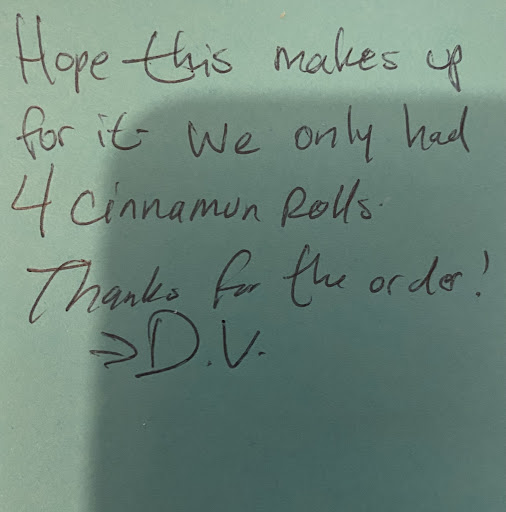 Hope this makes up
for it- We only had
4 Cinnamun Rolls.
Thanks for the order!
⇒ D.V.